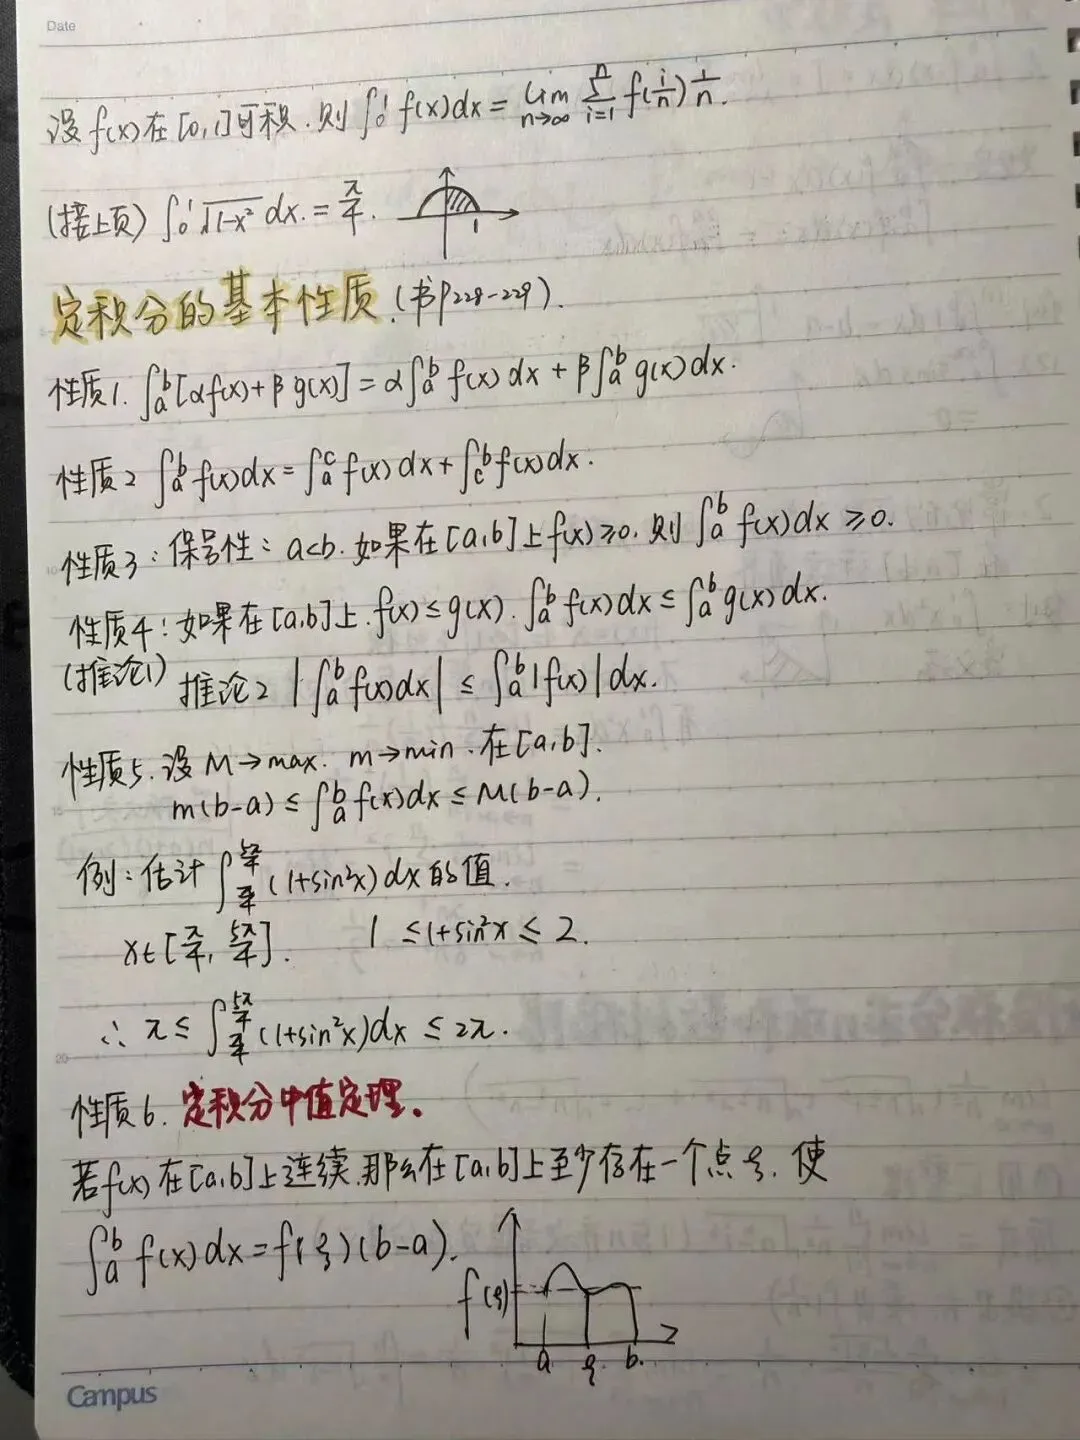 Date
设f(x)在[0,1]可积.则∫₀¹f(x)dx=lim n→∞ Σ i=1 n f(i/n)1/n.
(接上页)∫₀¹√(1-x²)dx.=π/4.
1
定积分的基本性质.(书P228-229).
性质1.∫ₐᵇ[αf(x)+βg(x)]=α∫ₐᵇf(x)dx+β∫ₐᵇg(x)dx.
性质2 ∫ₐᵇf(x)dx=∫ₐᶜf(x)dx+∫꜀ᵇf(x)dx.
性质3:保号性:a<b.如果在[a,b]上f(x)≥0.则∫ₐᵇf(x)dx≥0.
性质4:如果在[a,b]上.f(x)≤g(x).∫ₐᵇf(x)dx≤∫ₐᵇg(x)dx.
(推论1) 推论2 |∫ₐᵇf(x)dx|≤∫ₐᵇ|f(x)|dx.
性质5.设M→max. m→min.在[a,b].
m(b-a)≤∫ₐᵇf(x)dx≤M(b-a).
例:估计∫_{π/4}^{5π/4}(1+sin²x)dx的值.
x∈[π/4,5π/4]. 1≤1+sin²x≤2.
∴π≤∫_{π/4}^{5π/4}(1+sin²x)dx≤2π.
性质6.定积分中值定理。
若f(x)在[a,b]上连续.那么在[a,b]上至少存在一个点ξ.使
∫ₐᵇf(x)dx=f(ξ)(b-a).
f(ξ)
a ξ. b.
Campus